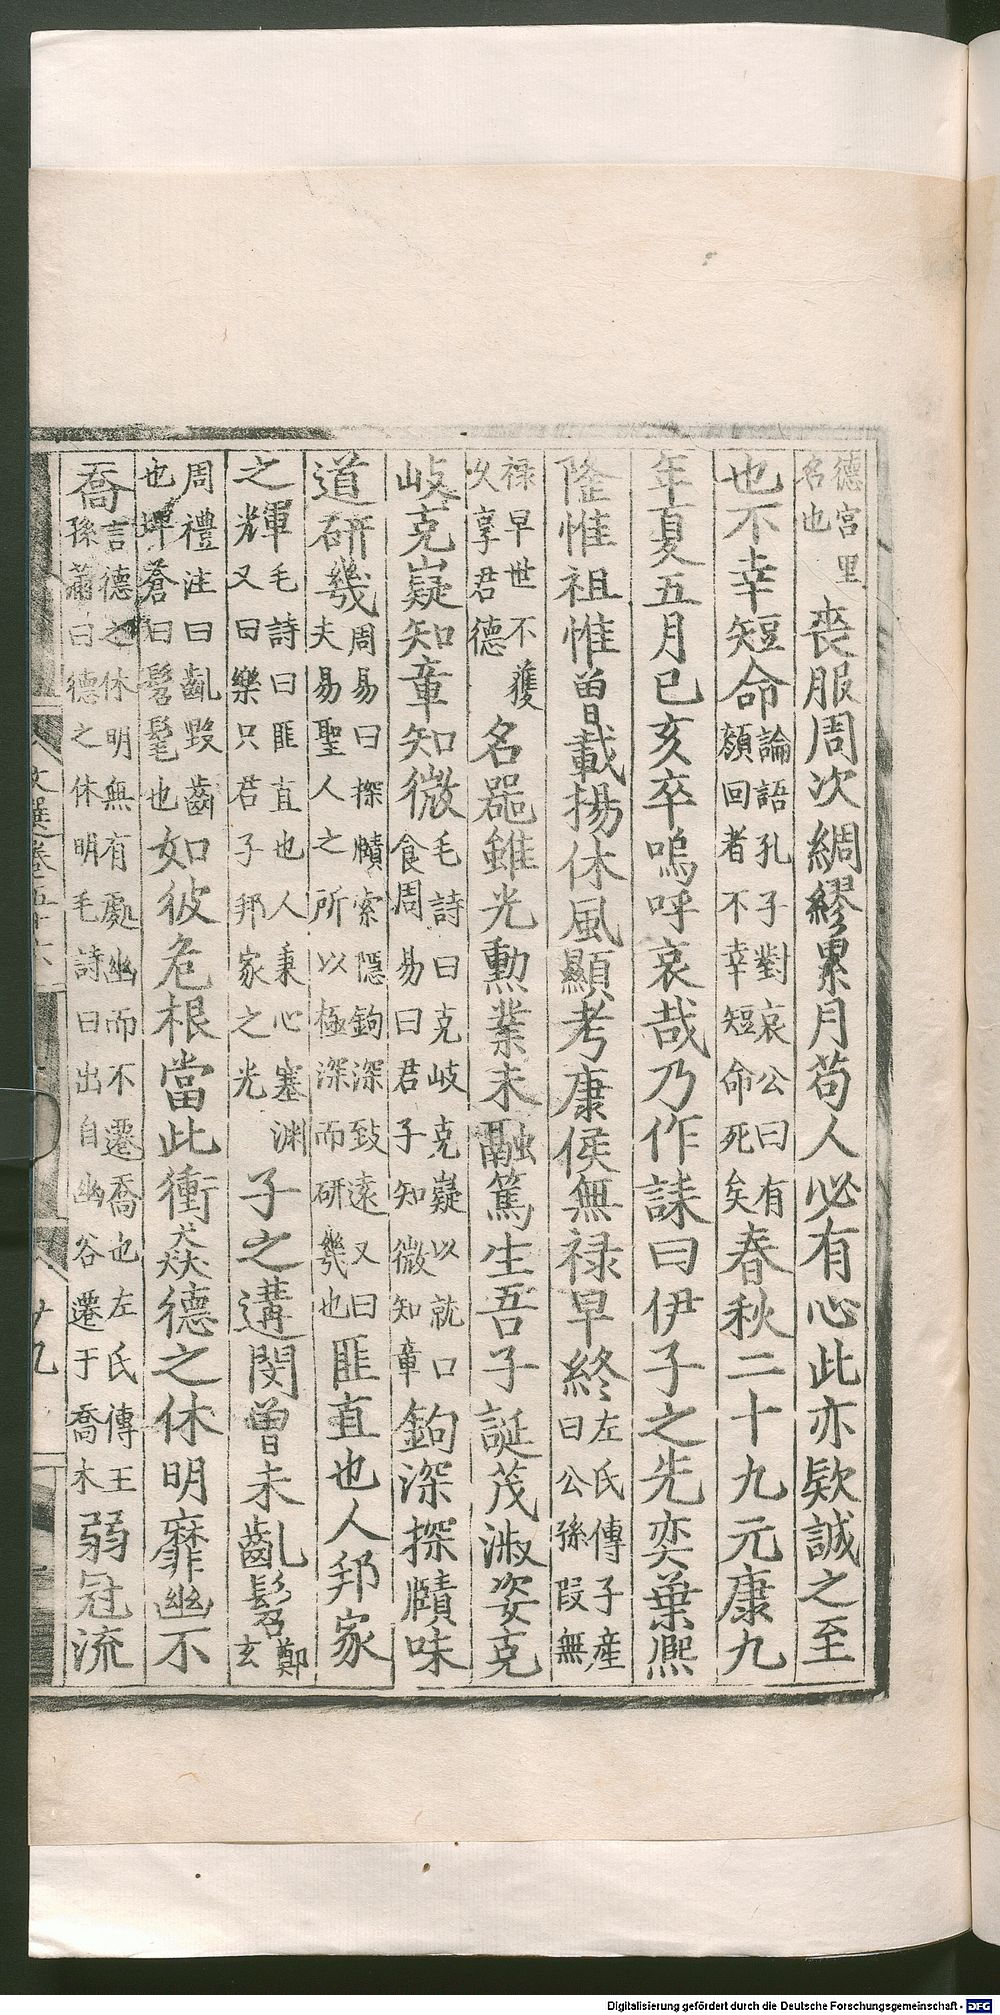 德宮里名也喪服周次綢繆累月苟人必有心此亦欵誠之至
也不幸短命論語孔子對哀公曰有顔回者不幸短命死矣春秋二十九元康九
年夏五月己亥卒嗚呼哀哉乃作誄曰伊子之先奕葉熈
隆惟祖惟曾載揚休風顯考康侯無禄早終左氏傳子産曰公孫段無
禄早世不獲久享君德名器雖光勳業未融篤生吾子誕茂淑姿克
岐克嶷知章知微毛詩曰克岐克嶷以就口食周易曰君子知微知章鉤深探賾味
道研幾周易曰探賾索隱鉤深致遠又曰夫易聖人之所以極深而研幾也匪直也人邦家
之輝毛詩曰匪直也人秉心塞淵又曰樂只君子邦家之光子之遘閔曾未齓髫鄭玄
周禮注曰齓毀齒也埤蒼曰髫髦也如彼危根當此衝焱德之休明靡幽不
喬言德之休明無有處幽而不遷喬也左氏傳王孫滿曰德之休明毛詩曰出自幽谷遷于喬木弱冠流
文選卷五十六
廿九
Digitalisierung gefördert durch die Deutsche Forschungsgemeinschaft - DFG